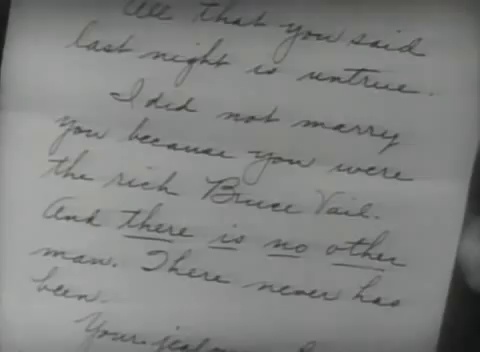 All that you said
last night is untrue.
I did not marry
you because you were
the rich Bruce Vail.
And there is no other
man. There never has
been.
Your